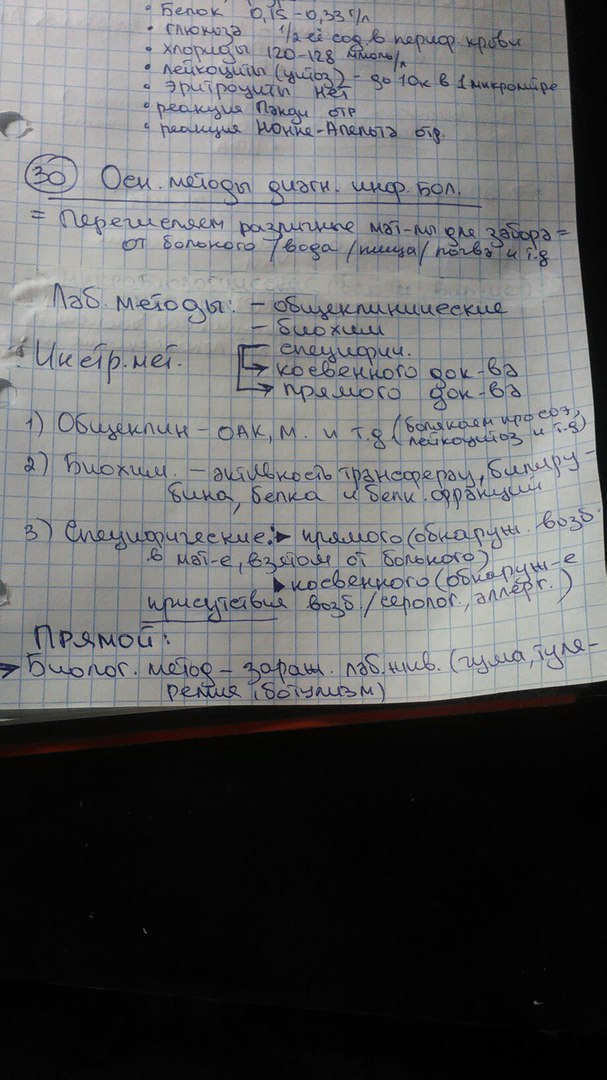 • Белок 0,15-0,33 г/л
• глюкоза 1/2 её сод в периф. крови
• хлориды 120-128 ммоль/л
• лейкоциты (цитоз) - до 10к в 1 микролитре
• эритроциты нет
• реакция Панди отр
• реакция Нонне-Апельта отр.
30 Осн. методы диагн. инф. бол.
= Перечисляем различные мат-лы для забора =
от больного / вода / пища / почва и т.д
Лаб. методы: - общеклинические
- биохим
Инстр. мет. специфич.
косвенного док-ва
прямого док-ва
1) Общеклин - ОАК, М. и т.д (болякаем про соэ,
лейкоцитоз и т.д)
2) Биохим. - активность трансфераз, билиру-
бина, белка и белк. фракций
3) Специфические: ▸ прямого (обнаруж. возб.
в мат-е, взятом от больного)
▸ косвенного (обнаруж-е
присутствия возб. / серолог., аллерг.)
Прямой:
→ Биолог. метод - зараж. лаб. жив. (чума, туля-
ремия, ботулизм)